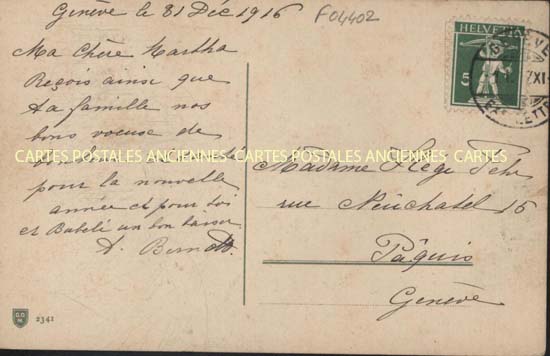 Genève le 31 Déc 1916
F04402
Ma Chère Martha
Reçois ainsi que
ta famille nos
bons voeuse de
pour la nouvelle
année et pour toi
et Bubeli un bon baiser
A. Berndt
HELVETIA
5
CARTES POSTALES ANCIENNES CARTES POSTALES ANCIENNES CARTES
Madame Hege
rue Neuchatel 15
Pâquis
Genève
2341